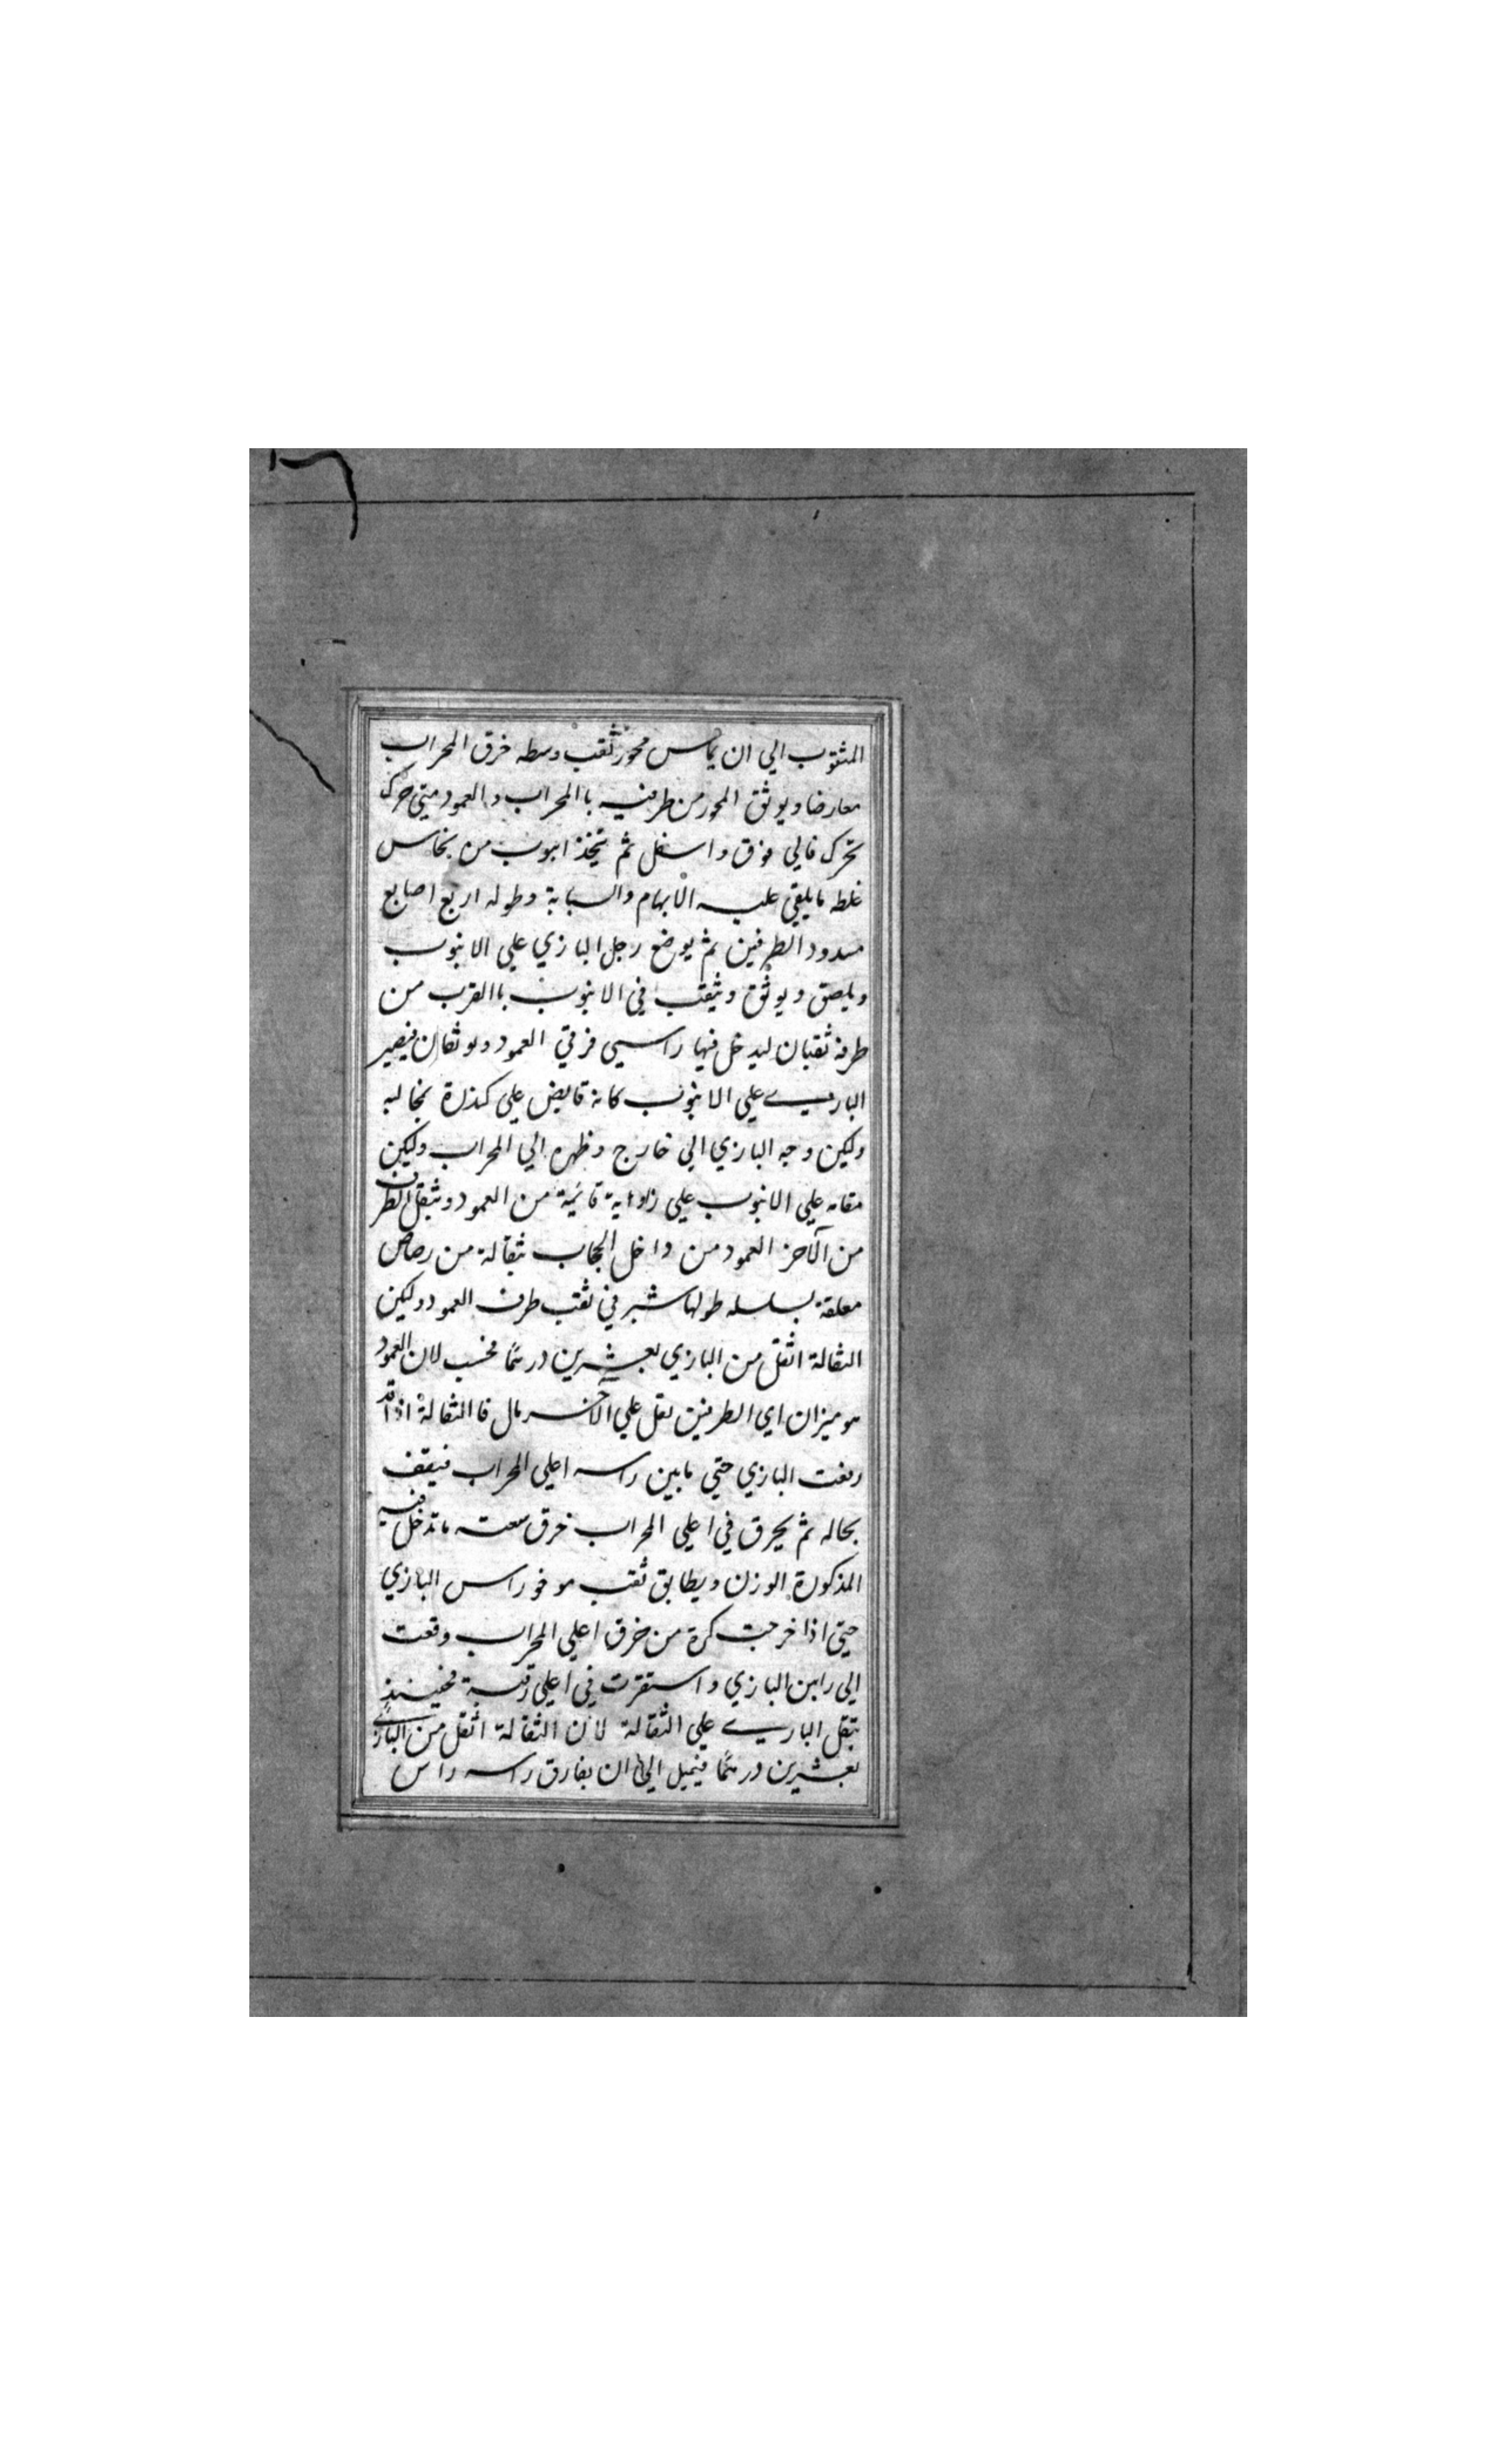 المثقوب الي ان يماس محور ثقب وسطه خرق المحراب
معارضا ويوثق المحور من طرفيه باالمحراب والعمود متي حرك
تحرك فالي فوق واسفل ثم يتخذ انبوب من نحاس
غلظه مايلقي عليه الابهام والسبابة وطوله اربع اصابع
مسدود الطرفين ثم يوضع رجل البازي علي الانبوب
ويلصق ويوثق ويثقب في الانبوب باالقرب من
طرفه ثقبان ليدخل فيها راسي فرقي العمود ويوثقان فيصير
البازي علي الانبوب كانه قابض علي كندرة بمخالبه
وليكن وجه البازي الي خارج وظهره الي المحراب وليكن
مقامه علي الانبوب علي زاوية قائمة من العمود ويثقل الطرف
من الآخر العمود من داخل الجاب بثقالة من رصاص
معلقة بسلسله طولها شبر في ثقب طرف العمود وليكن
الثقالة اثقل من البازي بعشرين درهما فحسب لان العمود
هو ميزان اي الطرفين ثقل علي الآخر مال فاالثقالة اذا قد
رفعت البازي حتي مابين راسه اعلي المحراب فيقف
بحاله ثم يخرق في اعلي المحراب خرق سعته ماتدخل فيه
المذكورة الوزن ويطابق ثقب موخر راس البازي
حتي اذا خرجت كرة من خرق اعلي المحراب وقعت
الي راس البازي واستقرت في اعلي رقبة فحينئذ
يثقل البازي علي الثقالة لان الثقالة اثقل من البازي
بعشرين درهما فيميل الي ان يفارق راسه راس